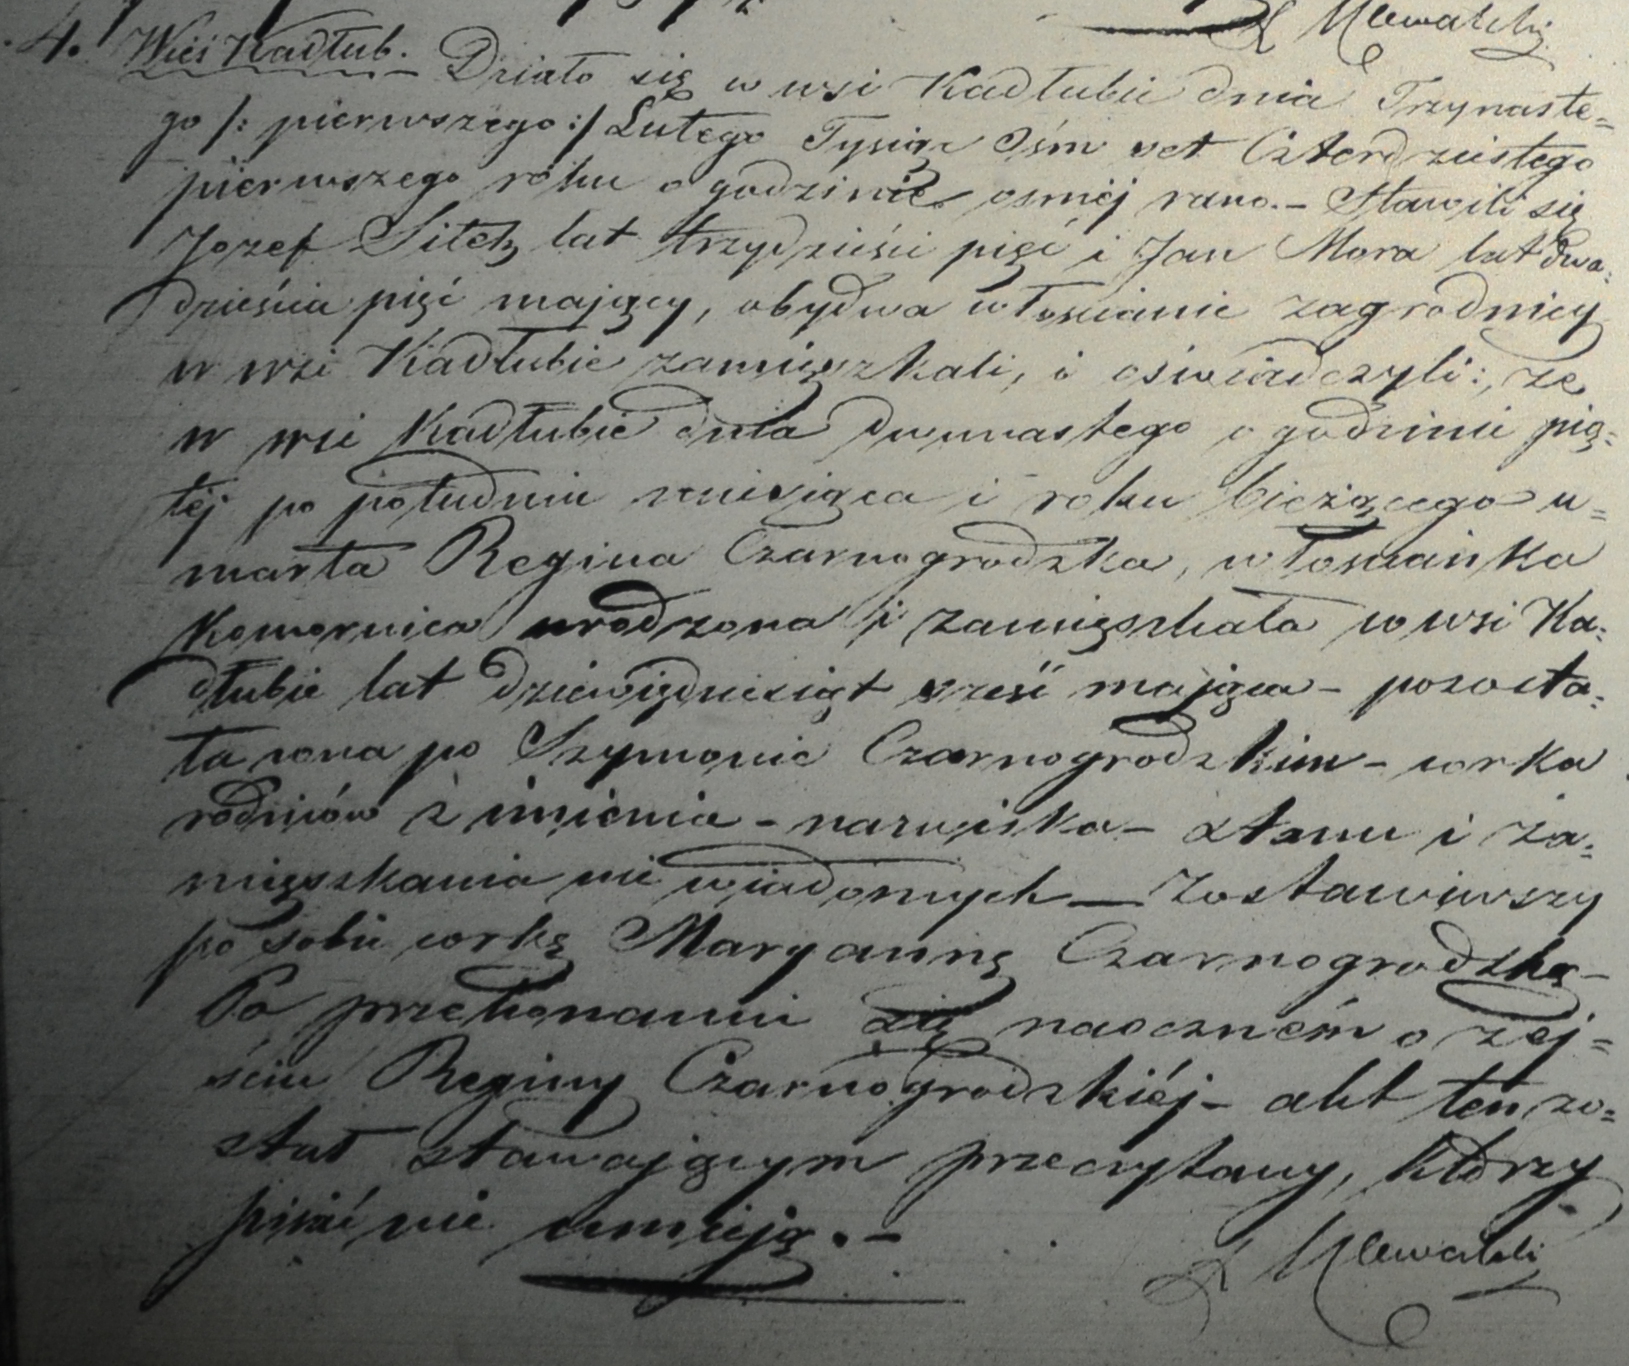 X Mlewalski
4. Wieś Kadłub. – Działo się w wsi Kadłubie dnia Trzynaste=
go /: pierwszego :/ Lutego Tysiąc Ośm set Czterdziestego
pierwszego roku o godzinie osméj rano. – Stawili się
Jozef Sitek lat trzydzieści pięć i Jan Mora lat dwa=
dzieścia pięć mający, obydwa włoscianie zagrodnicy
w wsi Kadłubie zamięszkali, i oświadczyli:, że
w wsi Kadłubie dnia dwunastego o godzinie pią=
téj po południu miesiąca i roku bieżącego u=
marła Regina Czarnogrodzka, włoscianka
Komornica urodzona i zamięszkała w wsi Ka=
dłubie lat dziewiędziesiąt sześć mająca – pozosta=
ła zona po Szymonie Czarnogrodzkim – corka
rodziców z imienia – nazwiska – stanu i za=
mięszkania nie wiadomych – Zostawiwszy
po sobie corkę Maryannę Czarnogrodzką –
Po przekonaniu się naoczném o zej=
ściu Reginy Czarnogrodzkiéj – akt ten zo=
stał stawającym przeczytany, którzy
pisać nie umieją. –
X Mlewalski